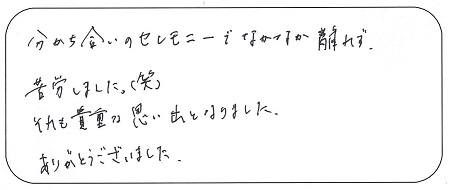 分かち合いのセレモニーでなかなか離れず、
苦労しました。(笑)
それも貴重な思い出となりました。
ありがとうございました。